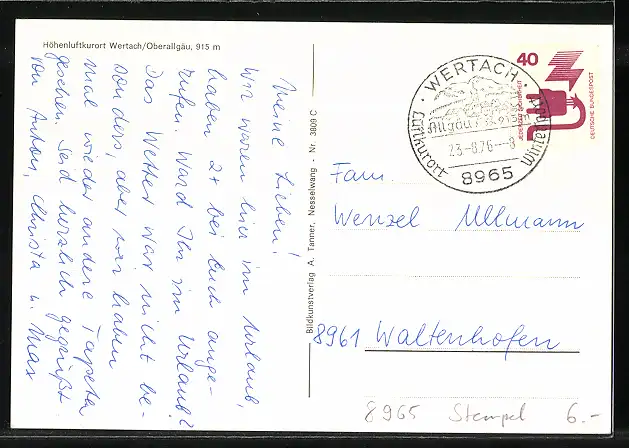 Höhenluftkurort Wertach/Oberallgäu, 915 m
Meine Lieben!
Wir waren hier im Urlaub,
haben 2x bei Euch ange-
rufen. Ward Ihr im Urlaub?
Das Wetter war nicht be-
sonders, aber wir haben
mal wieder andere Tapeten
gesehen. Seid herzlich gegrüßt
von Anton, Christa u. Max
Bildkunstverlag A. Tanner, Nesselwang - Nr. 3809 C
WERTACH
Allgäu 915m
23.-8.76.--8
Luftkurort
Wintersport
8965
40
JEDERZEIT SICHERHEIT
DEUTSCHE BUNDESPOST
Fam.
Wenzel Ullmann
8961 Waltenhofen
8965 Stempel 6.-